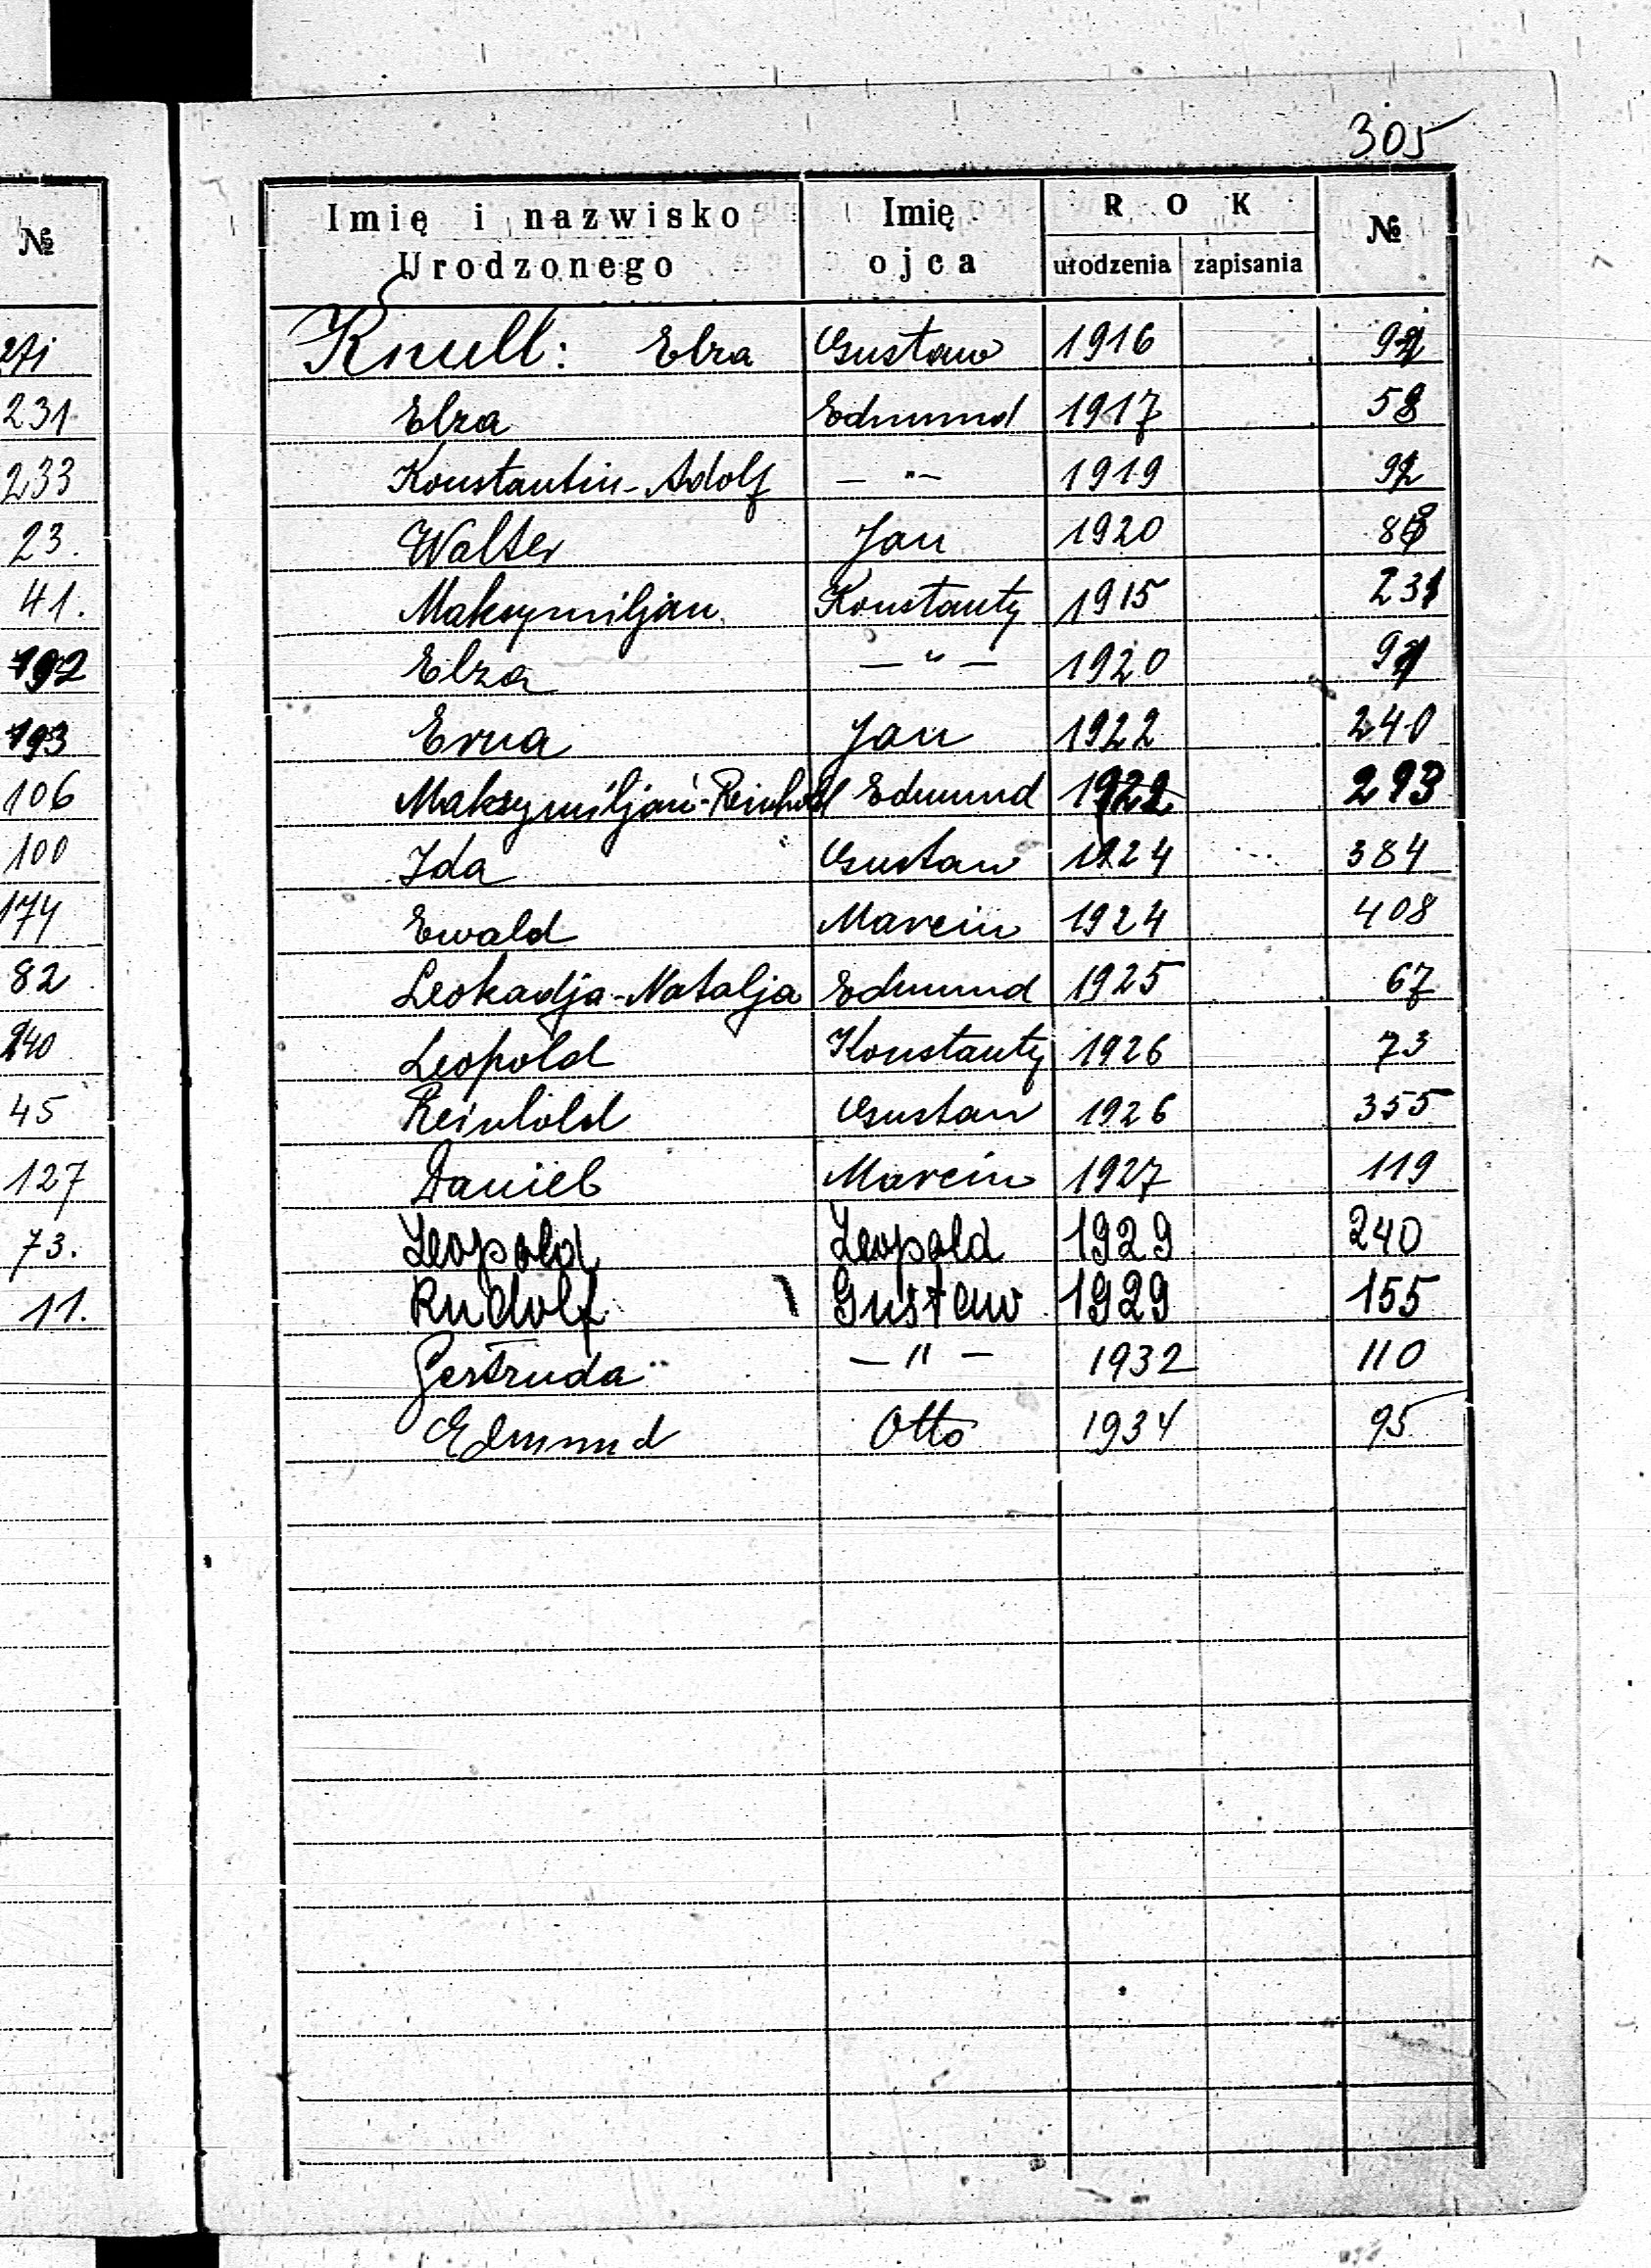 305
№
Imię i nazwisko Urodzonego Imię ojca ROK urodzenia zapisania №
271
231
233
23.
41.
192
193
106
100
174
82
240
45
127
73.
11.
Knull: Elza Gustaw 1916
Elza Edmund 1917 58
Konstantin-Adolf — " — 1919 92
Walter Jan 1920
Maksymiljan Konstanty 1915 231
Elza — " — 1920
Erna Jan 1922 240
Maksymiljan-Reinhold Edmund 1922 293
Ida Gustaw 1924 384
Ewald Marcin 1924 408
Leokadja-Natalja Edmund 1925 67
Leopold Konstanty 1926 73
Reinhold Gustaw 1926 355
Daniel Marcin 1927 119
Leopold Leopold 1929 240
Rudolf Gustaw 1929 155
Gertruda — " — 1932 110
Edmund Otto 1934 95